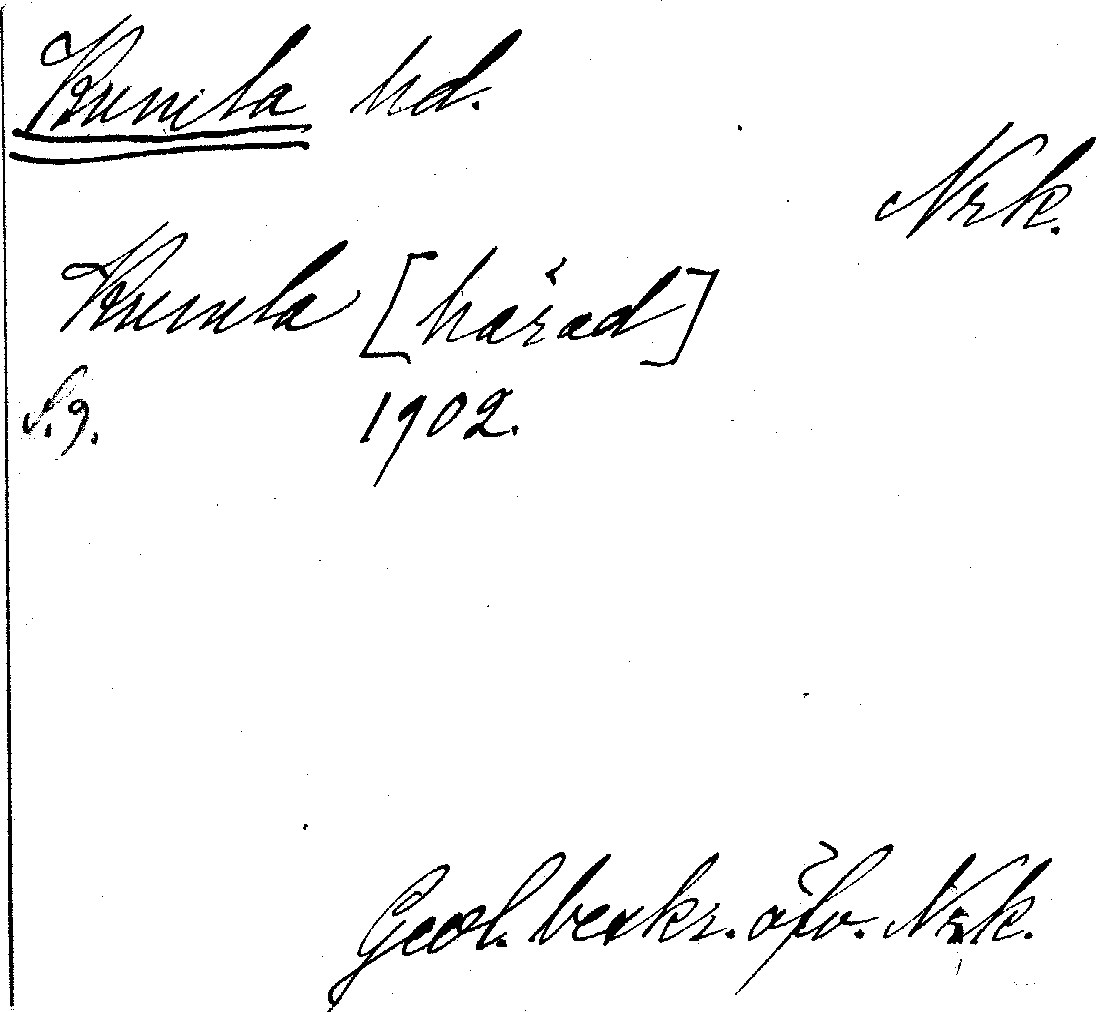 Kumla hd.
Nrk.
Kumla [härad]
S.9. 1902.
Geol. beskr. öfv. Nrk.